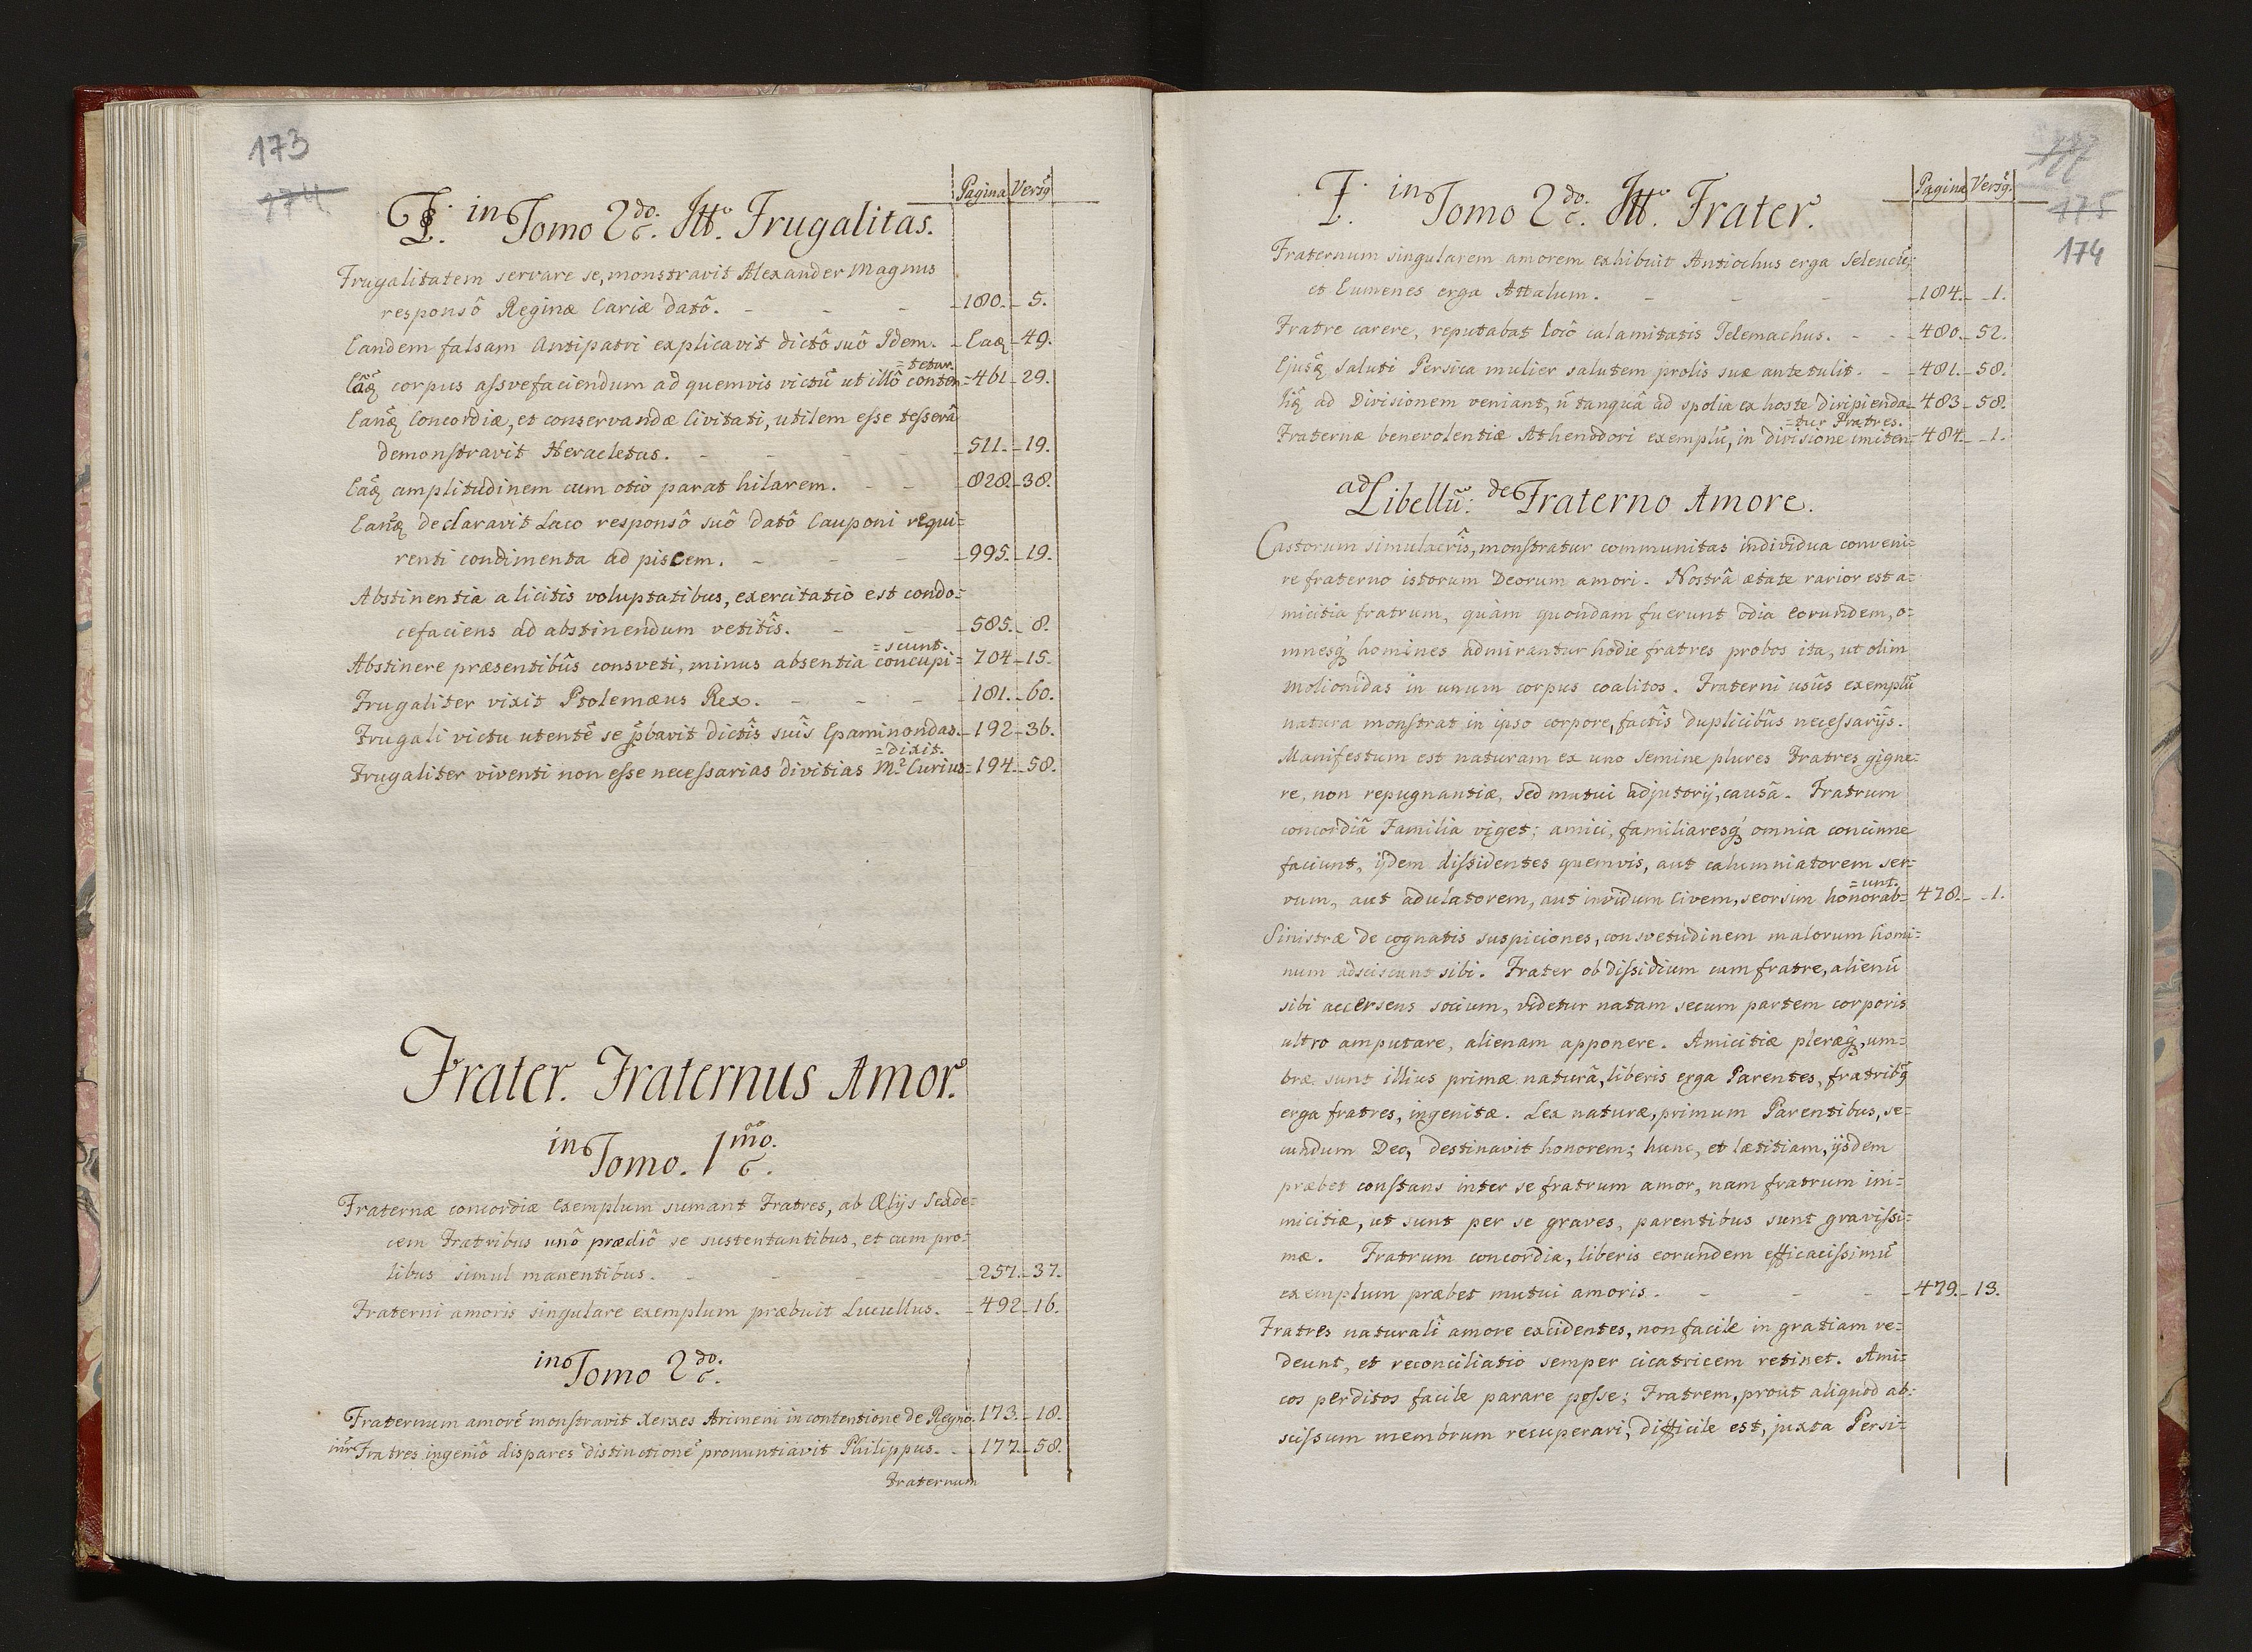 173
174
F. in Tomo 2do. Ittō. Frugalitas.
Pagina Versq
Frugalitatem servare se, monstravit Alexander Magnus
responsô Reginæ Cariæ datô. - - - 180. - 5.
Eandem falsam Antipatri explicavit dictô suô Idem. - Eaq - 49.
= tetur.
Eâq corpus assvefaciendum ad quemvis victũ ut illô conten= 461 - 29.
Eanq Concordiæ, et conservandæ Civitati, utilem esse tesserã
demonstravit Heracletus. - - - - 511. - 19.
Eâq amplitudinem cum otio parat hilarem. - - - 828. - 38.
Eanq declaravit Laco responsô suô datô Cauponi requi=
renti condimenta ad piscem. - - - 995. - 19.
Abstinentia a licitis voluptatibus, exercitatio est condo=
cefaciens ad abstinendum vetitîs. - - - 585. - 8.
= scunt.
Abstinere præsentibûs consveti, minus absentia concupi= 704 - 15.
Frugaliter vixit Ptolemæus Rex. - - - - 181. - 60.
Frugali victu utentẽ se pbavit dictîs suîs Epaminondas. - 192 - 36.
= dixit.
Frugaliter viventi non esse necessarias divitias M. Curius= 194. - 58.
Frater. Fraternus Amor.
in Tomo. 1mo.
Fraternæ concordiæ exemplum sumant Fratres, ab Ælijs Sexde=
cem Fratribus unô prædiô se sustentantibus, et cum pro=
libus simul manentibus. - - - - 257. - 37.
Fraterni amoris singulare exemplum præbuit Lucullus. - 492 - 16.
in Tomo 2do.
Fraternum amorẽ monstravit Xerxes Arimeni in contentione de Regno. 173. - 18.
inr Fratres ingeniô dispares distinctionẽ pronuntiavit Philippus. - 177 - 58.
Fraternum
177
175
174
F. in Tomo 2do. Ittō. Frater.
Pagina Versq
Fraternum singularem amorem exhibuit Antiochus erga Seleucũ;
et Eumenes erga Attalum. - - - - 184. - 1.
Fratre carere, reputabat locô calamitatis Telemachus. - - 480. - 52.
Ejusq saluti Persica mulier salutem prolis suæ antetulit. - - 481. - 58.
Iiq ad Divisionem veniant, ñ tanquã ad spolia ex hoste diripienda - 483 - 58.
= tur Fratres.
Fraternæ benevolentiæ Athenodori exemplũ, in divisione imiten= 484. - 1.
ad Libellũ: de Fraterno Amore.
Castorum simulacrîs, monstratur communitas individua conveni=
re fraterno istorum Deorum amori. Nostrâ ætate rarior est a=
micitia fratrum, quàm quondam fuerunt odia eorundem, o=
mnesq homines admirantur hodie fratres probos ita, ut olim
Molionidas in unum corpus coalitos. Fraterni usûs exemplũ
natura monstrat in ipso corpore, factîs duplicibûs necessarijs.
Manifestum est naturam ex uno semine plures Fratres gigne=
re, non repugnantiæ, sed mutui adjutorij, causâ. Fratrum
concordiâ Familia viget; amici, familiaresq omnia concinne
faciunt, ijdem dissidentes quemvis, aut calumniatorem ser=
= unt.
vum, aut adulatorem, aut invidum Civem, seorsim honorab= 478. - 1.
Sinistræ de cognatis suspiciones, consvetudinem malorum homi=
num adsciscunt sibi. Frater ob dissidium cum fratre, alienũ
sibi accersens socium, videtur natam secum partem corporis
ultro amputare, alienam apponere. Amicitiæ pleræq, um=
bræ sunt illius primæ naturâ, liberis erga Parentes, fratribq
erga fratres, ingenitæ. Lex naturæ, primum Parentibus, se=
cundum Deo, destinavit honorem; hunc, et lætitiam, ijsdem
præbet constans inter se fratrum amor, nam fratrum ini=
micitiæ, ut sunt per se graves, parentibus sunt gravissi=
mæ. Fratrum concordia, liberis eorundem efficacissimũ
exemplum præbet mutui amoris. - - - - 479. - 13.
Fratres naturali amore excidentes, non facile in gratiam re=
deunt, et reconciliatio semper cicatricem retinet. Ami=
cos perditos facile parare posse; Fratrem, prout aliquod ab=
scissum membrum recuperari, difficile est, juxta Persi=